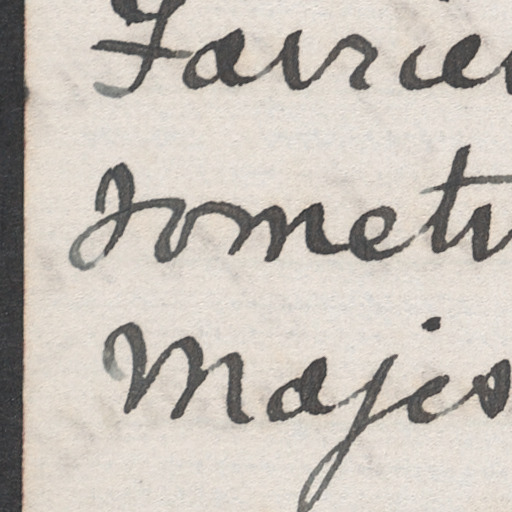 Fairie
someti
Majes